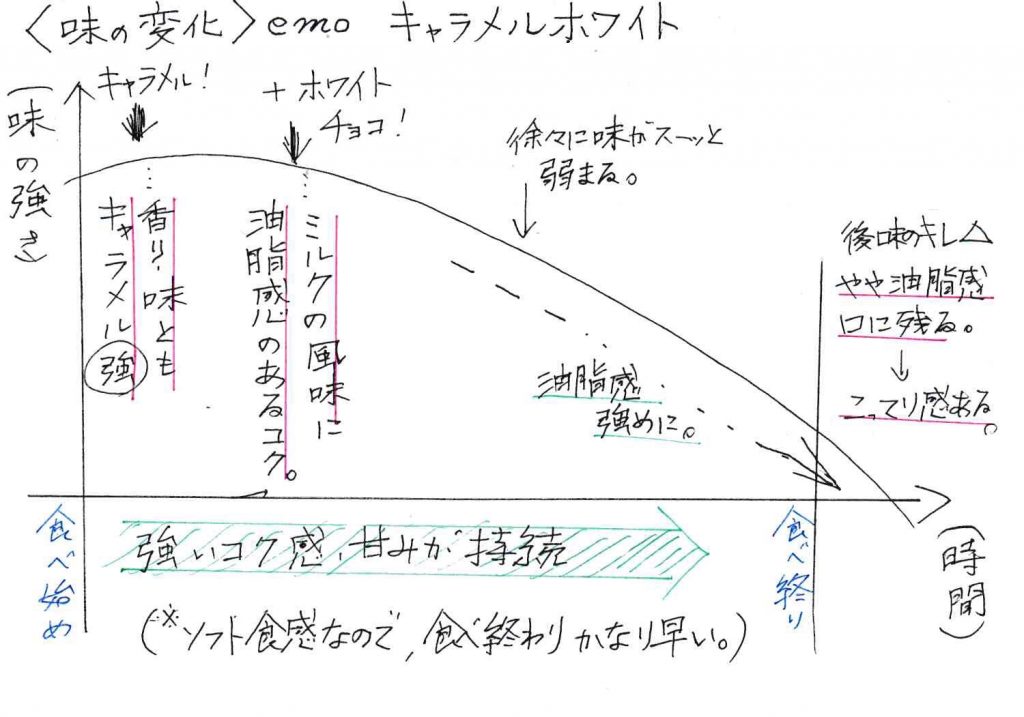 〈味の変化〉emo キャラメルホワイト
(味の強さ)
キャラメル!
+ホワイト
チョコ!
徐々に味がスーッと
弱まる。
香り・味とも
キャラメル強
ミルクの風味に
油脂感のあるコク。
油脂感
強めに。
後味のキレ△
やや油脂感
口に残る。
↓
こってり感ある。
食べ始め
強いコク感、甘みが持続
食べ終り
(時間)
(※ソフト食感なので、食べ終わりかなり早い。)